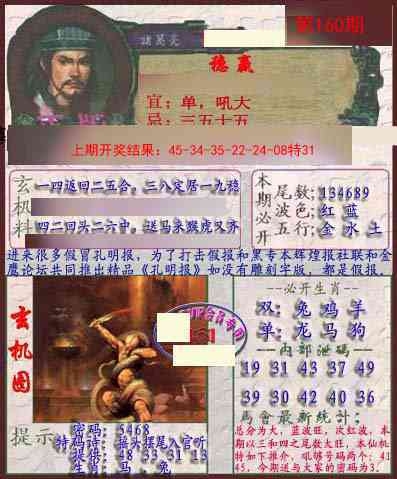 第160期
諸葛亮
稳赢
宜：单，吼大
忌：三五十五
上期开奖结果：45-34-35-22-24-08特31
玄机料
一四返回二五合，三八定居一九稳
四二回头二六中，送马来猴虎又齐
本期必开
尾数：134689
波色：红 蓝
五行：金 水 土
进来很多假冒孔明报，为了打击假报和黑专本辉煌报社联和金
鹰论坛共同推出精品《孔明报》如没有雕刻字版，都是假报。
玄机图
--必开生肖--
双：兔 鸡 羊
单：龙 马 狗
--内部泄码--
19 31 43 37 49
39 30 42 40 36
馬會最新統计：
总分为大，蓝波旺，次红波，本
期以三和四之尾数大旺，本仙机
特如下推介，吼够号码两个：41
45，今期送与大家的密码为3．
提示
密码：5468
特码诗：摇头摆尾入官听
提供：48 33 31 13
生肖：马、兔